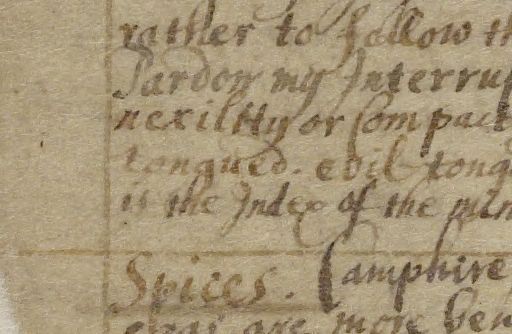 rather to follow th
Pardon my Interrup
nexility or Compact
tongued. evil tong
is the Index of the min
Spices. Camphire
are more